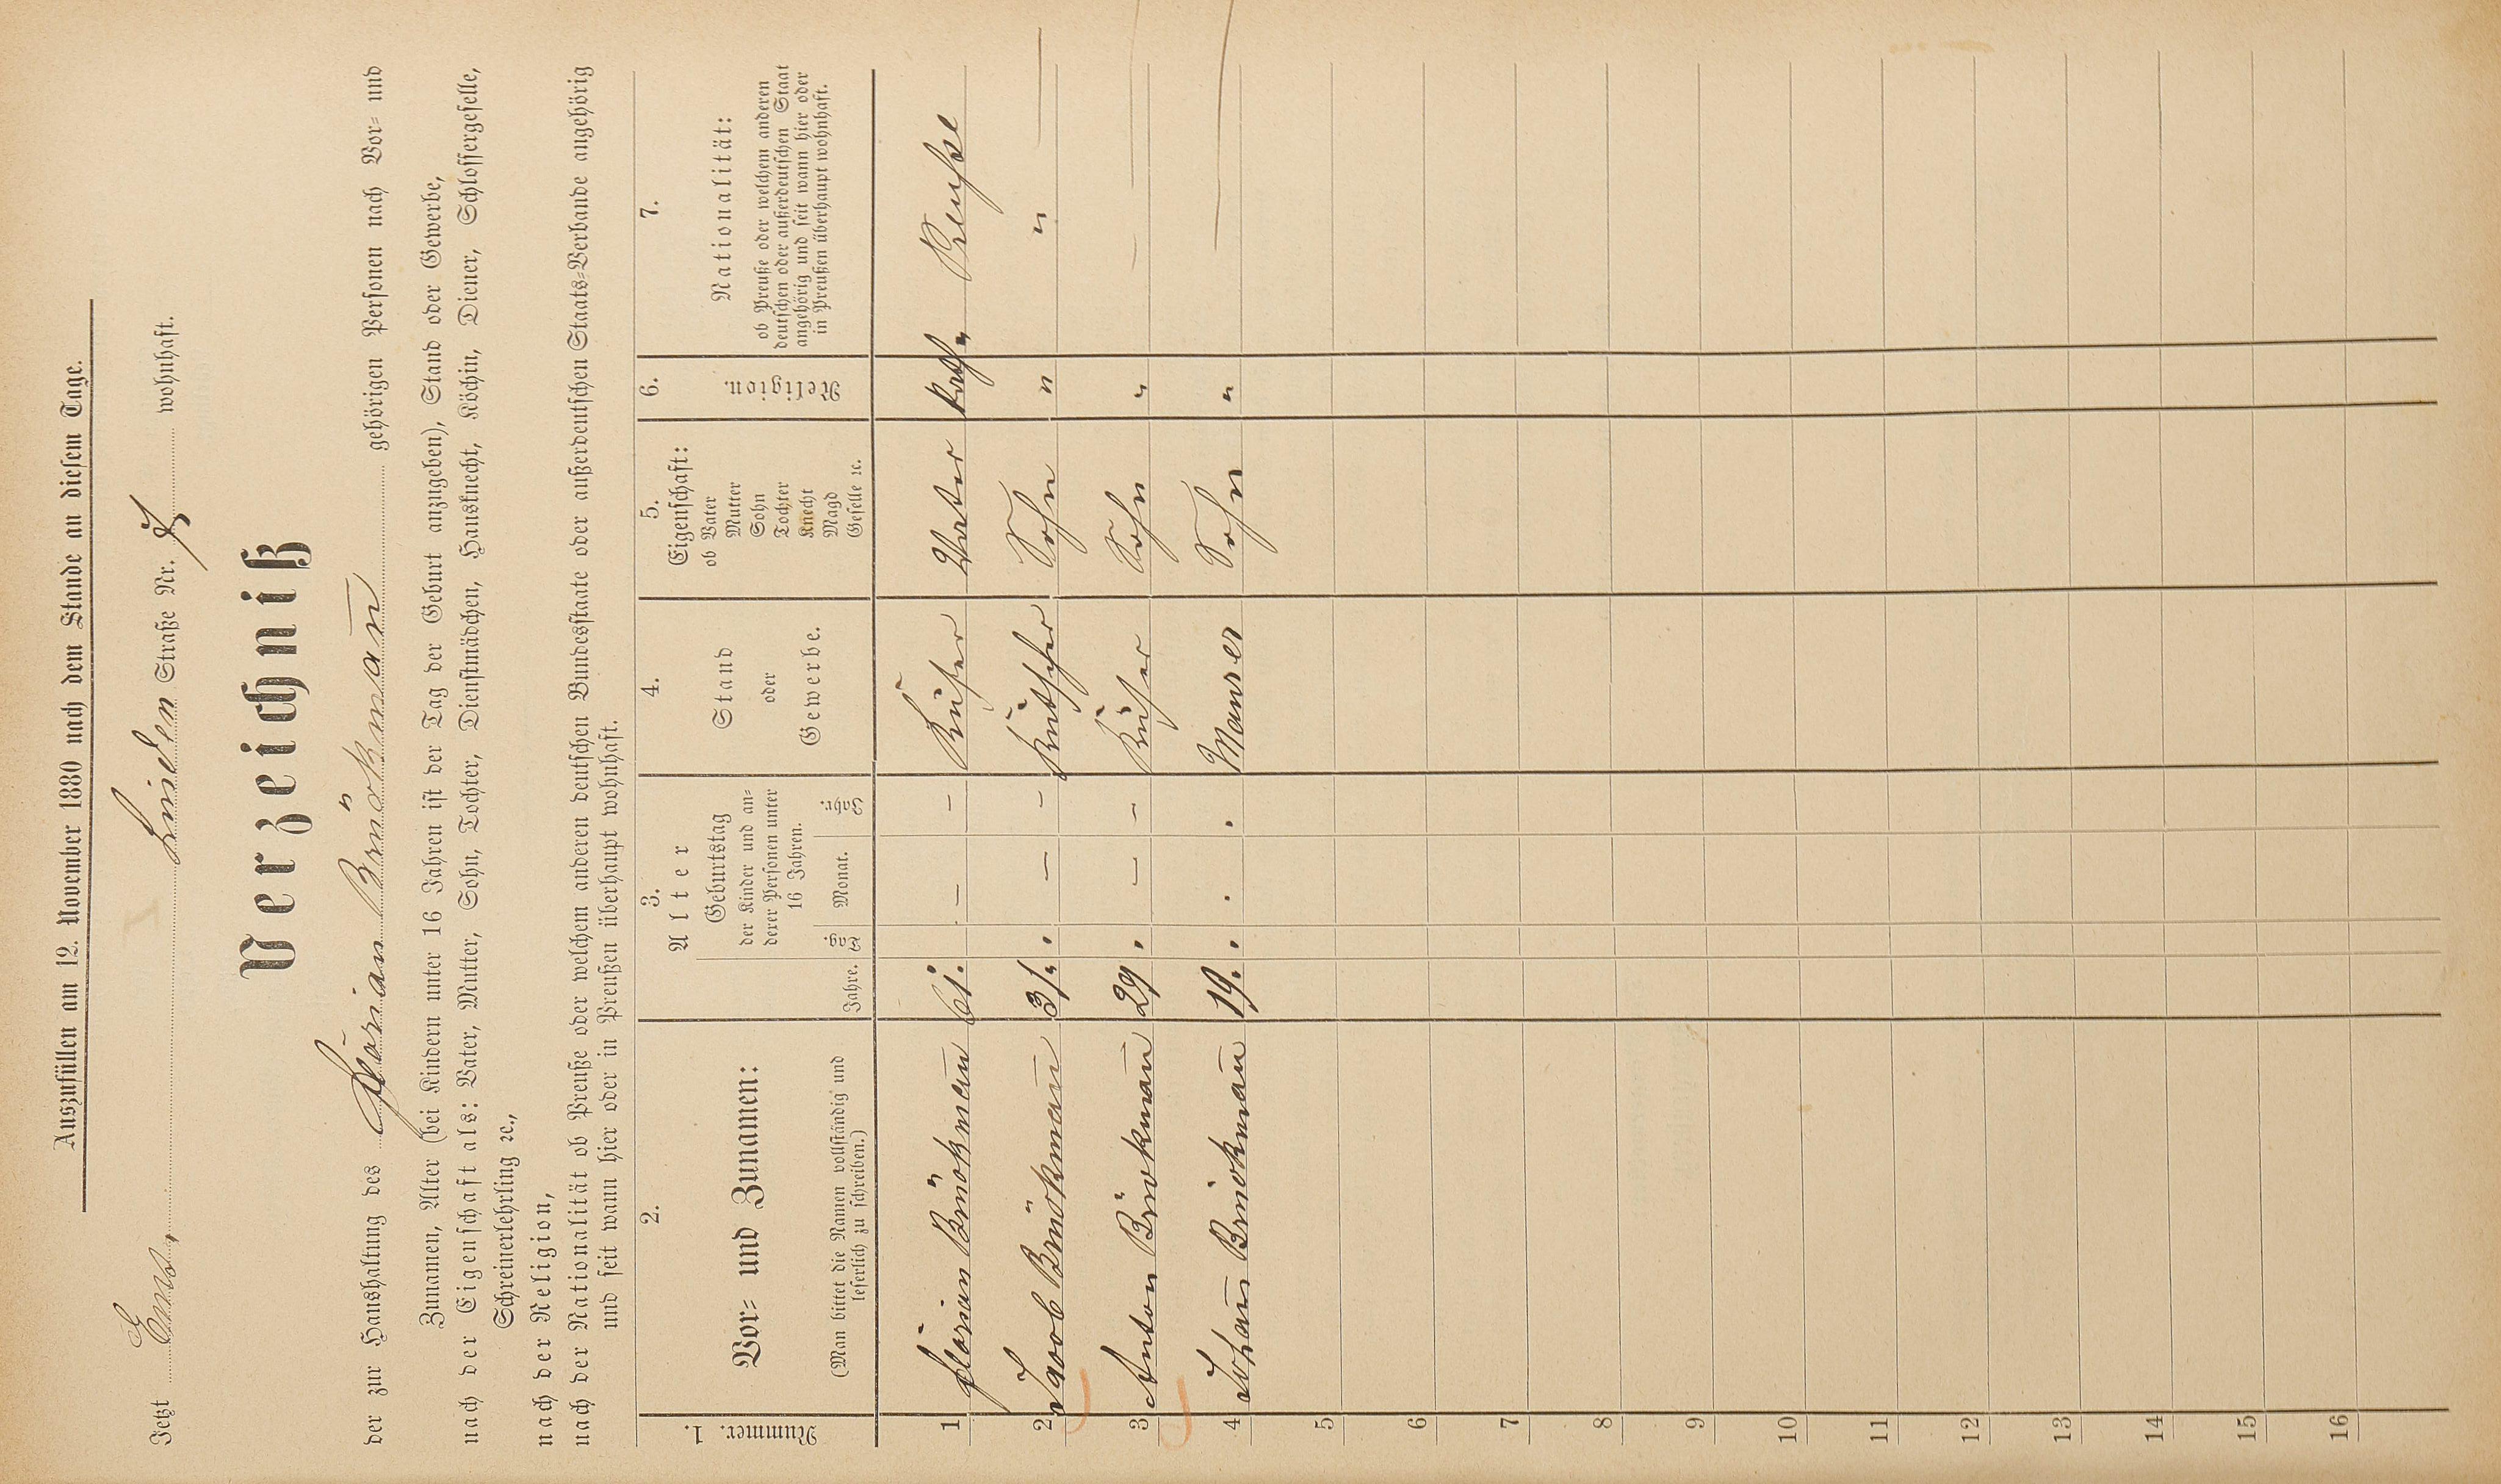 Auszufüllen am 12. November 1880 nach dem Stande an diesem Tage.
Jetzt Ems, Linden Straße Nr. 7 wohnhaft.
Verzeichniß
der zur Haushaltung des Florian Brückmann gehörigen Personen nach Vor- und
Zunamen, Alter (bei Kindern unter 16 Jahren ist der Tag der Geburt anzugeben), Stand oder Gewerbe,
nach der Eigenschaft als: Vater, Mutter, Sohn, Tochter, Dienstmädchen, Hausknecht, Köchin, Diener, Schlossergeselle,
Schreinerlehrling ꝛc.,
nach der Religion,
nach der Nationalität ob Preuße oder welchem anderen deutschen Bundesstaate oder außerdeutschen Staats-Verbande angehörig
und seit wann hier oder in Preußen überhaupt wohnhaft.
1.
Nummer.
2.
Vor- und Zunamen:
(Man bittet die Namen vollständig und
leserlich zu schreiben.)
3.
Alter
Geburtstag
der Kinder und an-
derer Personen unter
16 Jahren.
Jahre. Tag Monat. Jahr.
4.
Stand
oder
Gewerbe.
5.
Eigenschaft:
ob Vater
Mutter
Sohn
Tochter
Knecht
Magd
Geselle ꝛc.
6.
Religion.
7.
Nationalität:
ob Preuße oder welchem anderen
deutschen oder außerdeutschen Staat
angehörig und seit wann hier oder
in Preußen überhaupt wohnhaft.
1 Florian Brückmann 61. – – Küfer Vater kath. Preuße
2 Jacob Brückmann 31. – – Kutscher Sohn " "
3 Anton Brückmann 29 – – Küfer Sohn " —
4 Johann Brückmann 19. Maurer Sohn " —
5
6
7
8
9
10
11
12
13
14
15
16